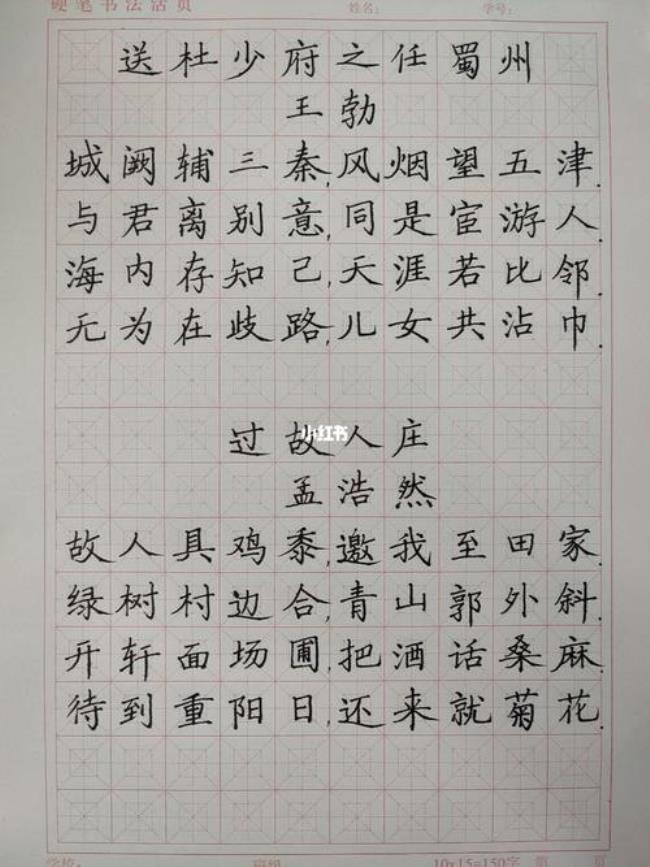 硬笔书法活页 姓名: 学号:
送杜少府之任蜀州
王勃
城阙辅三秦,风烟望五津.
与君离别意,同是宦游人.
海内存知己,天涯若比邻.
无为在歧路,儿女共沾巾.
过故人庄
小红书
孟浩然
故人具鸡黍,邀我至田家.
绿树村边合,青山郭外斜.
开轩面场圃,把酒话桑麻.
待到重阳日,还来就菊花.
学校: 班级 10x15=150字 第 页